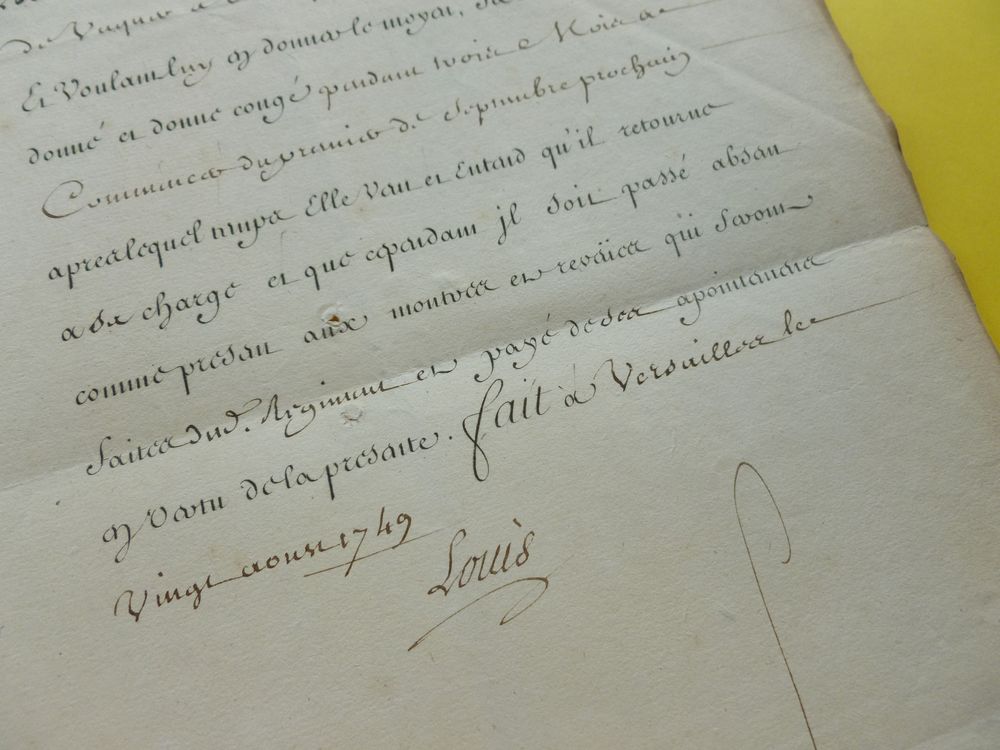 de Vaquer a
Et Voulant luy en donner le moyen, Sa
donné et donne congé pendant trois Mois a
Commencer du premier de Septembre prochain
apres lequel temps Elle Veut et Entend qu'il retourne
a sa charge et que cependant jl soit passé absent
comme present aux montres et reveües qui seront
faites dud. Regiment et payé de ses apointements
en vertu de la presente. fait à Versailles le
Vingt aoust 1749
Louis